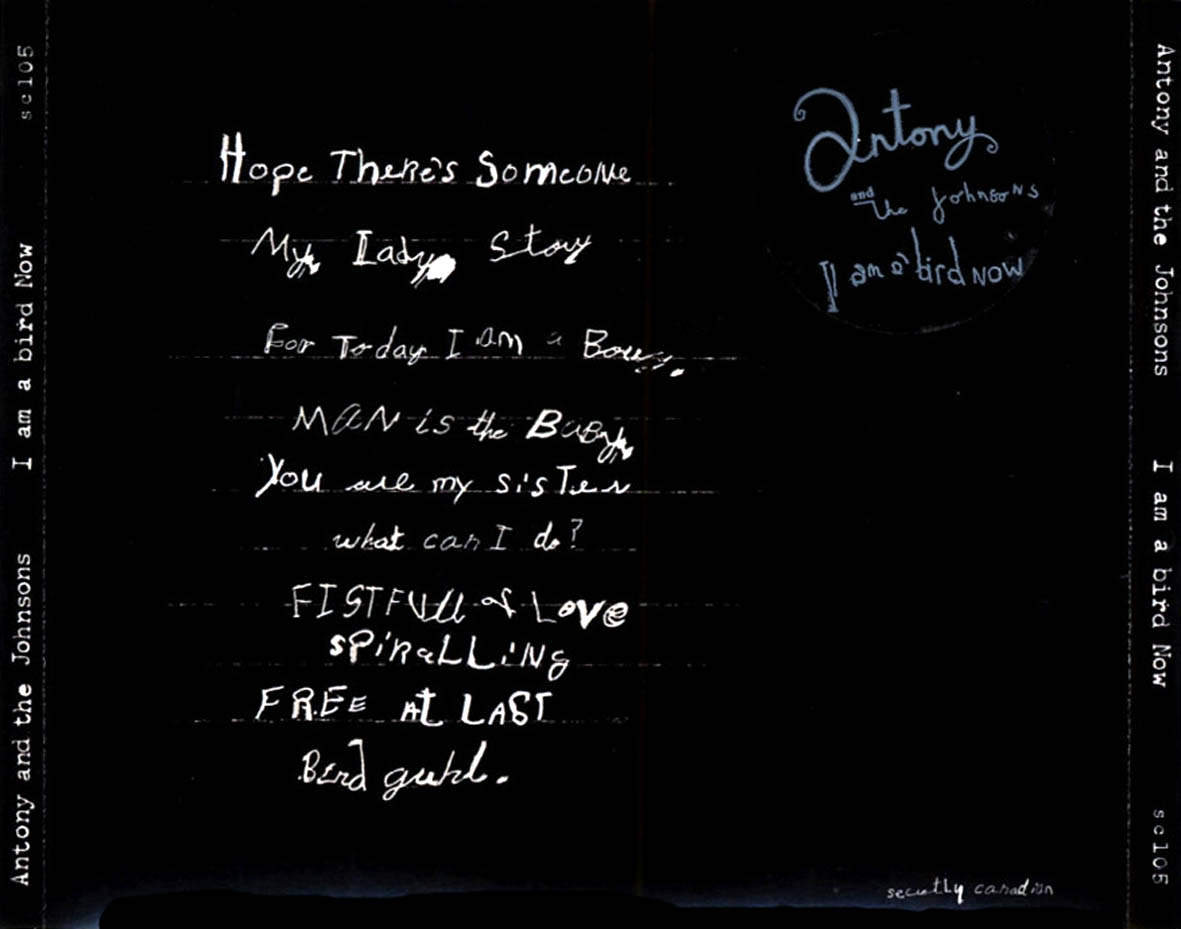 Antony and the Johnsons I am a bird Now sc105
Hope There's Someone
My Lady Story
For Today I am a Boy
MAN is the Baby
You are my sister
what can I do?
FISTFUll of Love
SPiRaLLiNg
FREE At LAST
Bird guhl.
Antony
and the Johnsons
I am a bird NOW
secretly canadian
Antony and the Johnsons I am a bird Now sc105